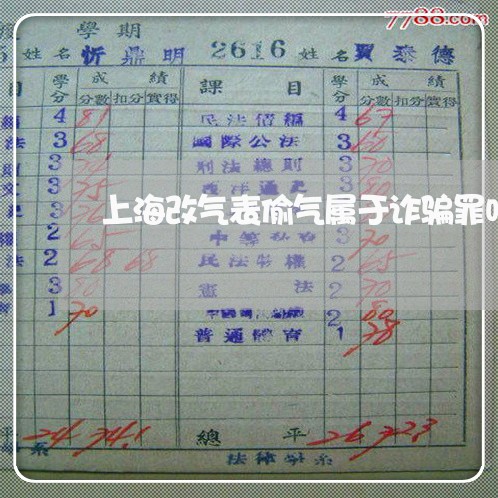 7788.com
學期
姓名 忻鼎明 2616 姓名 賈泰德
目 學分 成績 課目 學分 成績
分數 扣分 實得 分數 扣分 實得
4 81 民法債編 4 67
法 3 68 國際公法 3 60
3 刑法總則 3 70
3 75 3 80
上海改气表偷气属于诈骗罪
2 65 3 70
法 2 68 68 民法物權 2 65
3 80 憲法 2 70
1 70 2 80
普通體育 1 78
平 24 74.1 總平 26 72.3
系 法律學系